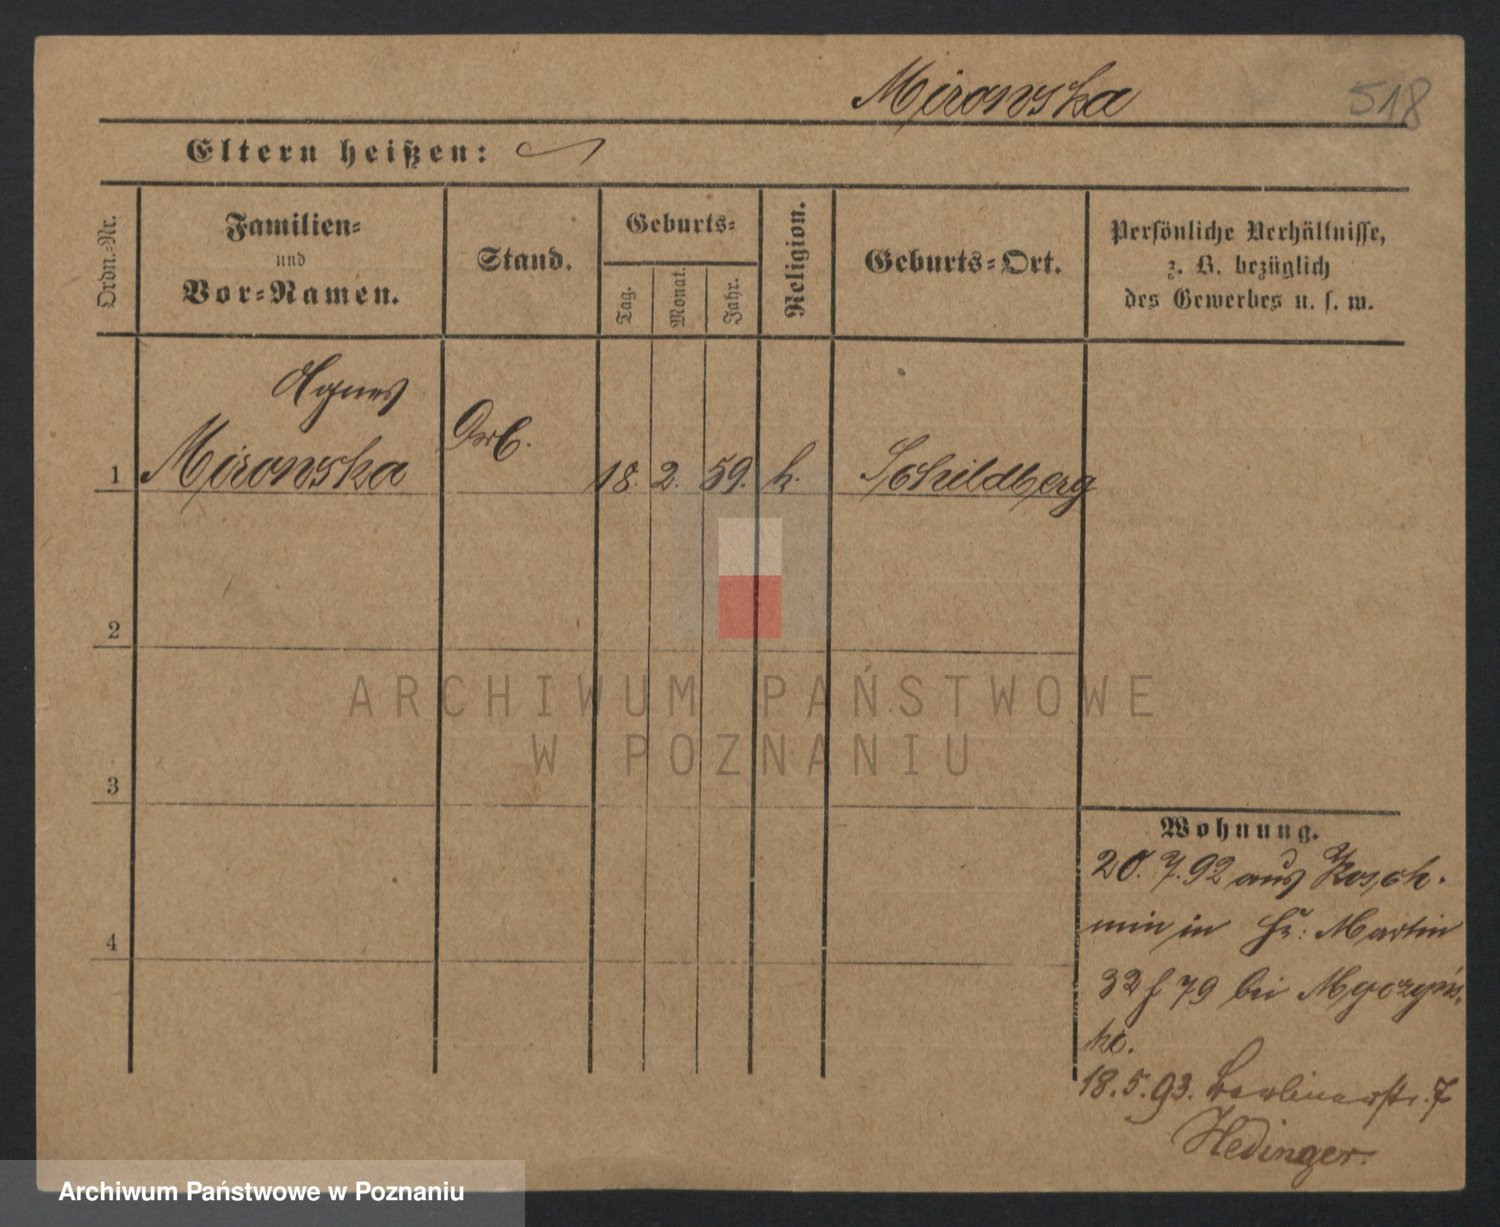 Mirowska 518
Eltern heißen:
Ordn.-Nr.
Familien-
und
Vor-Namen.
Stand.
Geburts-
Tag.
Monat.
Jahr.
Religion.
Geburts-Ort.
Persönliche Verhältnisse,
z. B. bezüglich
des Gewerbes u. s. w.
Agnes
1 Mirowska 18. 2. 59. k. Schildberg
2
ARCHIWUM PAŃSTWOWE
W POZNANIU
3
Wohnung.
20. 7. 92 aus Kosch-
min in St: Martin
4
32 79 bei
18. 5. 93. Berlinerstr. 7
Hedinger.
Archiwum Państwowe w Poznaniu